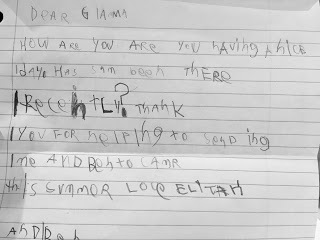 DEAR GIAMA
HOW ARE YOU ARE YOU HAVING A NICE
1DAY? HAS SAM BEEN THERE
RECEhTLY? THANK
YOU FOR hELPING to SENDING
ME AND BEN to CAMP
thIS SUMMER LOVE ELITAH
AND BEN